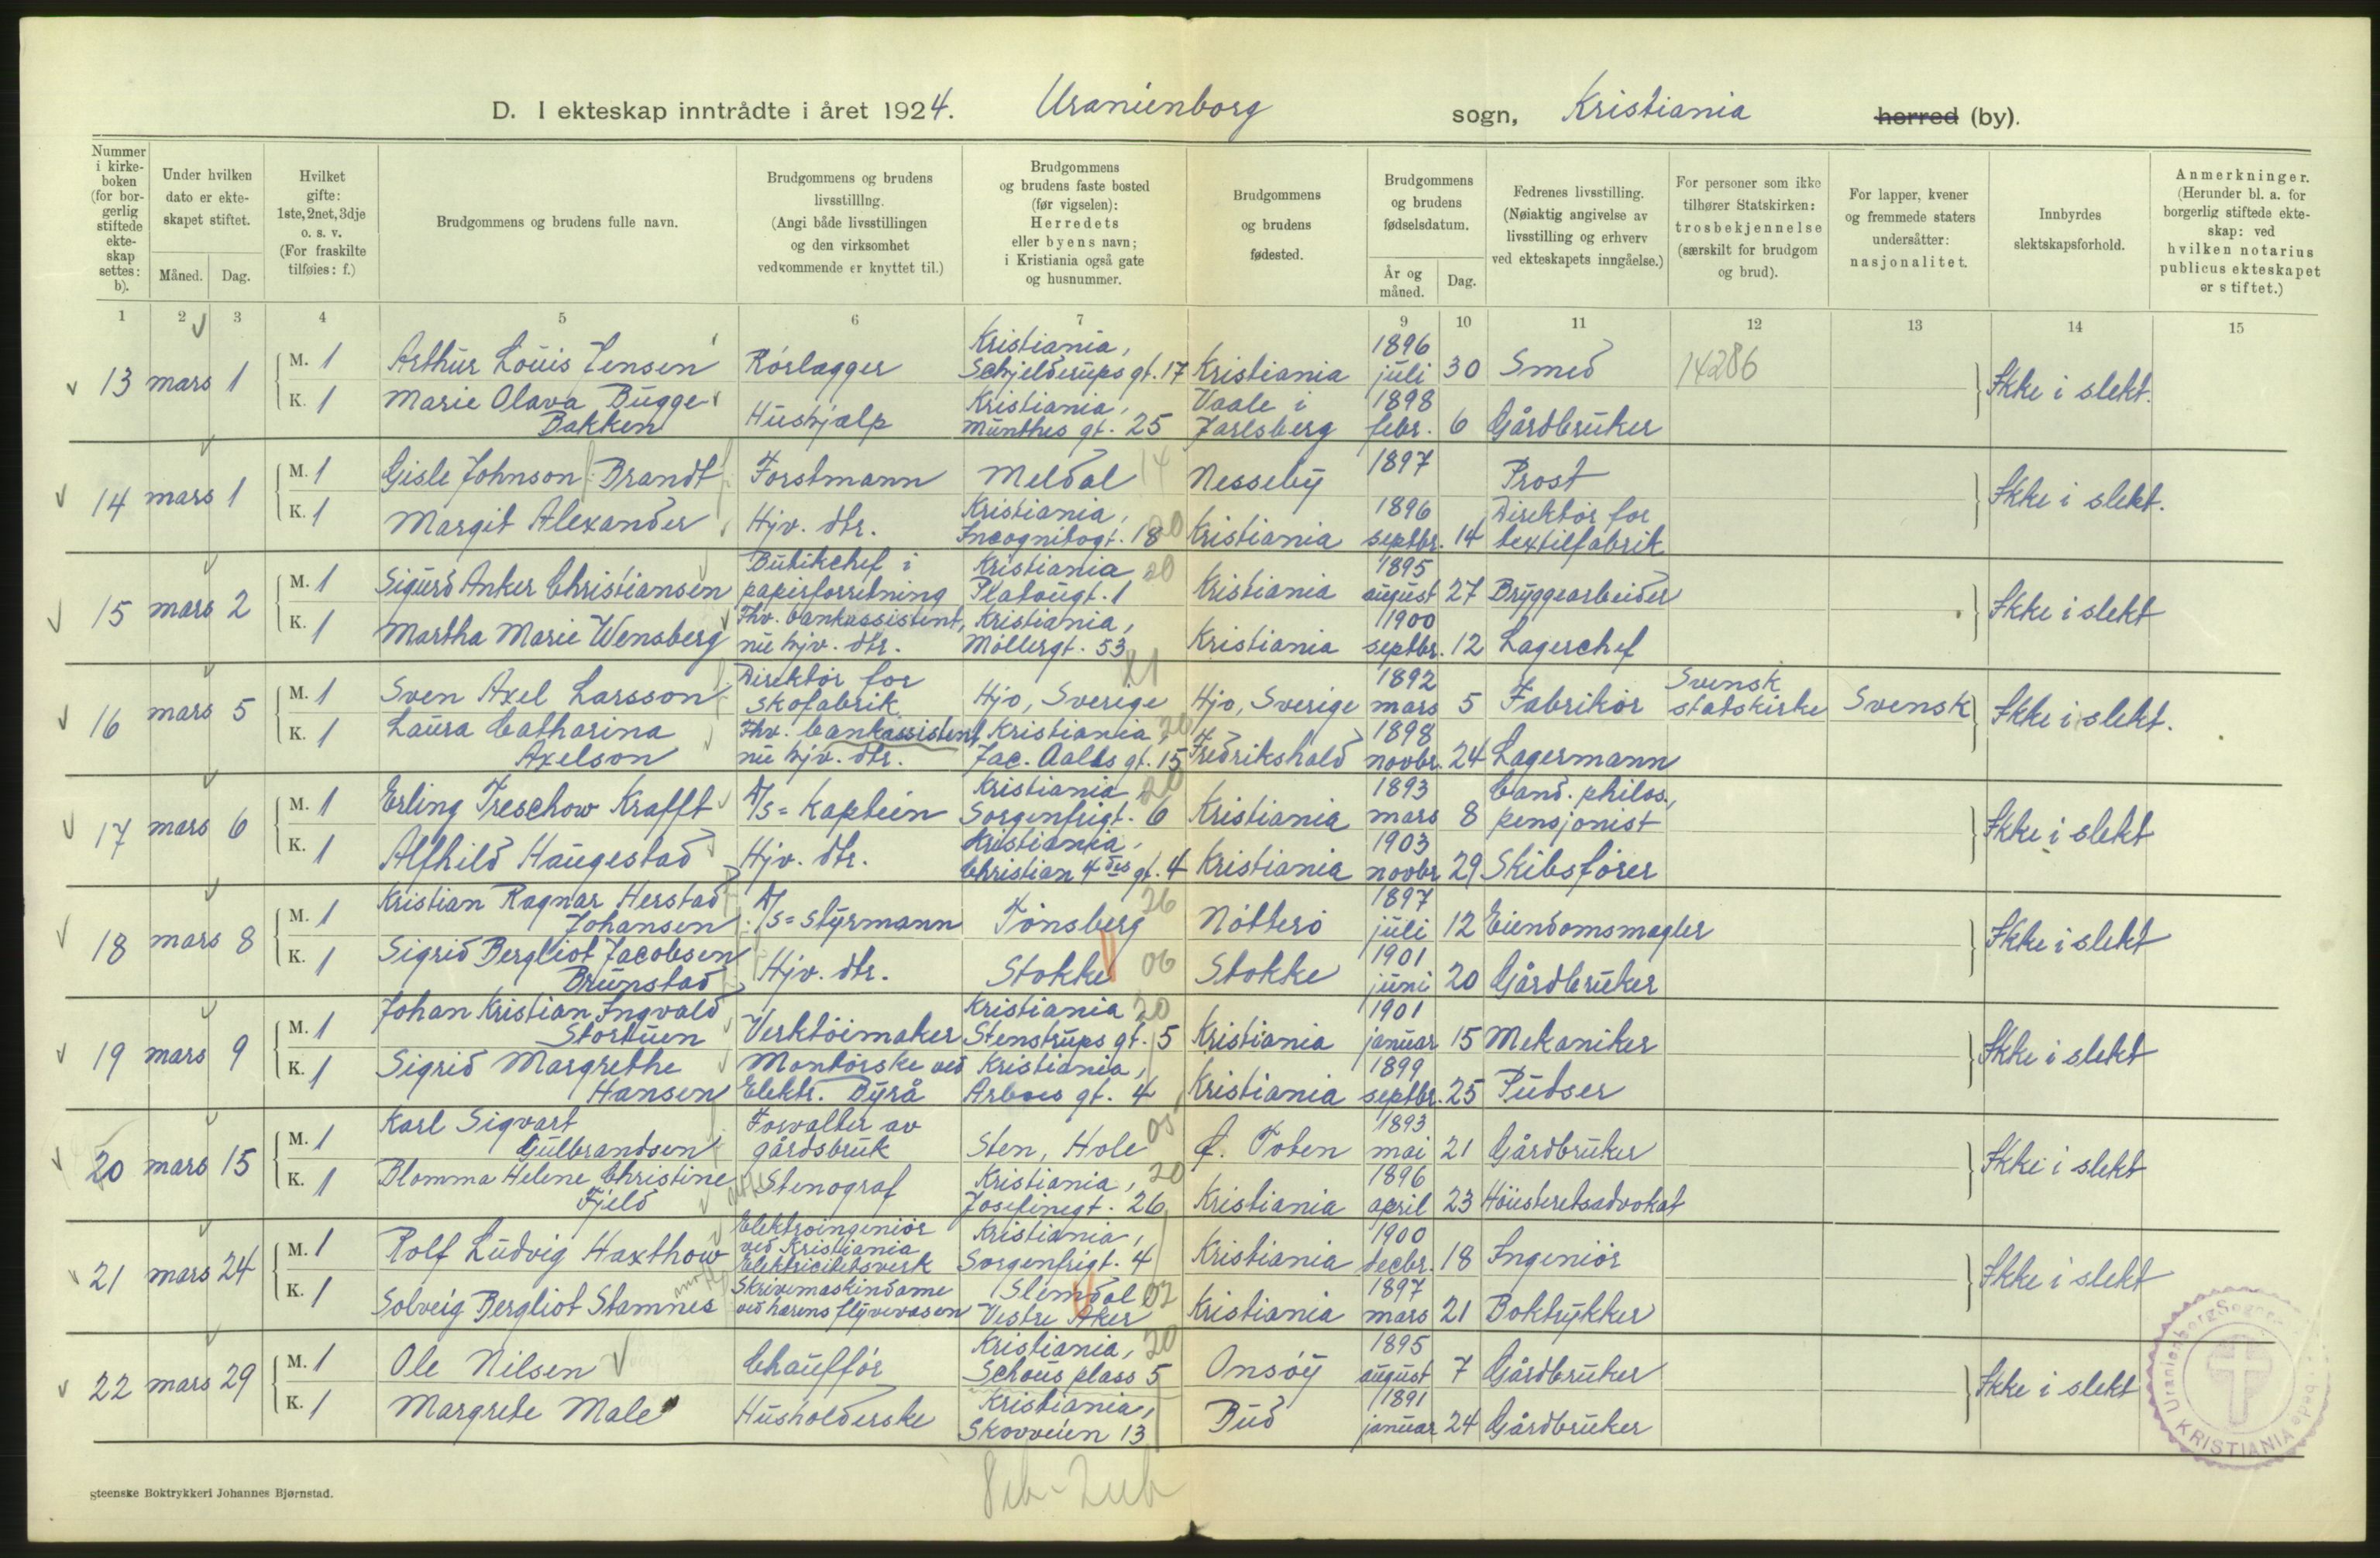 D. I ekteskap inntrådte i året 1924. Uranienborg sogn, Kristiania herred (by).
Nummer i kirke-boken (for bor-gerlig stiftede ekte-skap settes: b).
Under hvilken dato er ekte-skapet stiftet.
Måned. Dag.
Hvilket gifte: 1ste, 2net, 3dje o. s. v. (For fraskilte tilføies: f.)
Brudgommens og brudens fulle navn.
Brudgommens og brudens livsstilllng. (Angi både livsstillingen og den virksomhet vedkommende er knyttet til.)
Brudgommens og brudens faste bosted (før vigselen): Herredets eller byens navn; i Kristiania også gate og husnummer.
Brudgommens og brudens fødested.
Brudgommens og brudens fødselsdatum.
År og måned. Dag.
Fedrenes livsstilling. (Nøiaktig angivelse av livsstilling og erhverv ved ekteskapets inngåelse.)
For personer som ikke tilhører Statskirken: trosbekjennelse (særskilt for brudgom og brud).
For lapper, kvener og fremmede staters undersåtter: nasjonalitet.
Innbyrdes slektskapsforhold.
Anmerkninger. (Herunder bl. a. for borgerlig stiftede ekte-skap: ved hvilken notarius publicus ekteskapet er stiftet.)
1 2 3 4 5 6 7 9 10 11 12 13 14 15
13 mars 1
M. 1 Arthur Louis Jensen Rörlægger Kristiania, Schjelderups gt. 17 Kristiania 1896 juli 30 Smed 14286
K. 1 Marie Olava Bugge Bakken Hushjælp Kristiania, Munthes gt. 25 Vaale i Jarlsberg 1898 febr. 6 Gårdbruker
Ikke i slekt.
14 mars 1
M. 1 Gisle Johnson Brandt Forstmann Meldal 14 Nesseby 1897 Prost
K. 1 Margit Alexander Hjv. dtr. Kristiania, Incognitogt. 18 20 Kristiania 1896 septbr. 14 Direktör for textilfabrik
Ikke i slekt.
15 mars 2
M. 1 Sigurd Anker Christiansen Butikchef i papirforretning Kristiania 20 Platougt. 1 Kristiania 1895 august 27 Bryggearbeider
K. 1 Martha Marie Wensberg Fhv. bankassistent, nu hjv. dtr. Kristiania, Möllergt. 53 Kristiania 1900 septbr. 12 Lagerchef
Ikke i slekt
16 mars 5
M. 1 Sven Axel Larsson Direktör for skofabrik Hjo, Sverige Hjo, Sverige 1892 mars 5 Fabrikör Svensk statskirke Svensk
K. 1 Laura Catharina Axelson Fhv. bankassistent, nu hjv. dtr. Kristiania, 20 Jac. Aalls gt. 15 Fredrikshald 1898 novbr. 24 Lagermann
Ikke i slekt.
17 mars 6
M. 1 Erling Treschow Krafft A/S= Kaptein Kristiania 20 Sorgenfrigt. 6 Kristiania 1893 mars 8 Cand. philos., pensjonist
K. 1 Alfhild Haugestad Hjv. dtr. Kristiania, Christian 4des gt. 4 Kristiania 1903 novbr 29 Skibsförer
Ikke i slekt
18 mars 8
M. 1 Kristian Ragnar Herstad Johansen A/S= styrmann Tönsberg 26 Nötterö 1897 juli 12 Eiendomsmægler
K. 1 Sigrid Bergliot Jacobsen Brunstad Hjv. dtr. Stokke 06 Stokke 1901 juni 20 Gårdbruker
Ikke i slekt
19 mars 9
M. 1 Johan Kristian Ingvald Stortuen Verktöimaker Kristiania, 20 Stenstrups gt. 5 Kristiania 1901 januar 15 Mekaniker
K. 1 Sigrid Margrethe Hansen Montörske ved Elektr. Byrå Kristiania, Arboes gt. 4 Kristiania 1899 septbr. 25 Pudser
Ikke i slekt
20 mars 15
M. 1 Karl Sigvart Gulbrandsen Forvalter av gårdsbruk Sten, Hole 05 Ö. Toten 1893 mai 21 Gårdbruker
K. 1 Blomma Helene Christine Fjeld Stenograf Kristiania, 20 Josefinegt. 26 Kristiania 1896 april 23 Höiesteretsadvokat
Ikke i slekt
21 mars 24
M. 1 Rolf Ludvig Haxthow Elektroingeniör ved Kristiania Elektricitetsverk Kristiania, Sorgenfrigt. 4 Kristiania 1900 decbr. 18 Ingeniör
K. 1 Solveig Bergliot Stamnes Skrivemaskindame ved hærens flyvevæsen Slemdal 02 Vestre Aker Kristiania 1897 mars 21 Boktrykker
Ikke i slekt
22 mars 29
M. 1 Ole Nilsen Chaufför Kristiania, 20 Schous plass 5 Onsöy 1895 august 7 Gårdbruker
K. 1 Margrete Male Husholderske Kristiania, Skovveien 13 Bud 1891 januar 24 Gårdbruker
Ikke i slekt
KRISTIANIA
steenske Boktrykkeri Johannes Bjørnstad.